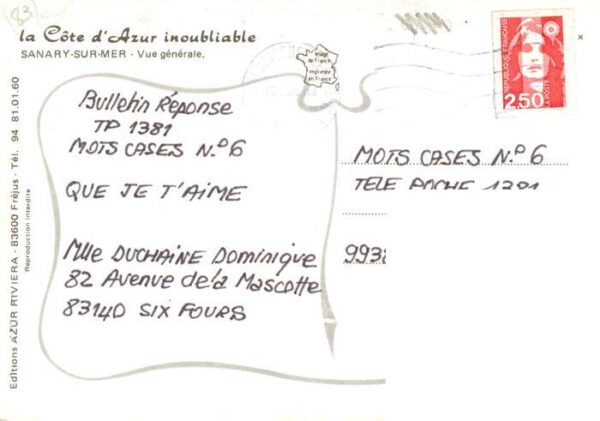 la Côte d'Azur inoubliable
SANARY-SUR-MER - Vue générale.
Image de France
Imprimée en France
RÉPUBLIQUE FRANÇAISE
2,50
LA POSTE
Bulletin Réponse
TP 1381
MOTS CASES N.º 6
QUE JE T'AIME
Mlle DUCHAINE Dominique
82 Avenue de la Mascotte
83140 SIX FOURS
MOTS CASES N.º 6
TELE POCHE 1201
Editions AZUR RIVIERA - 83600 Fréjus - Tél. 94 81.01.60
Reproduction interdite